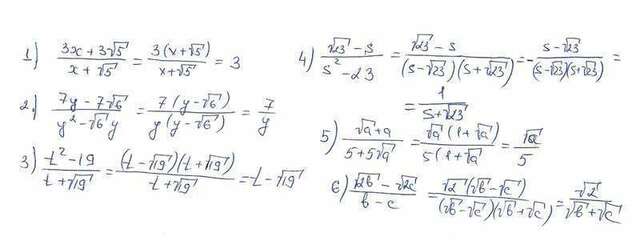 1) (3x + 3√5)/(x + √5) = 3(x + √5)/(x + √5) = 3
2) (7y - 7√6)/(y² - √6 y) = 7(y - √6)/(y(y - √6)) = 7/y
3) (t² - 19)/(t + √19) = (t - √19)(t + √19)/(t + √19) = t - √19
4) (√23 - s)/(s² - 23) = (√23 - s)/((s - √23)(s + √23)) = -(s - √23)/((s - √23)(s + √23)) =
= 1/(s + √23)
5) (√a + a)/(5 + 5√a) = √a(1 + √a)/(5(1 + √a) = √a/5
6) (√2b - √2c)/(b - c) = √2(√b - √c)/((√b - √c)(√b + √c)) = √2/(√b + √c)